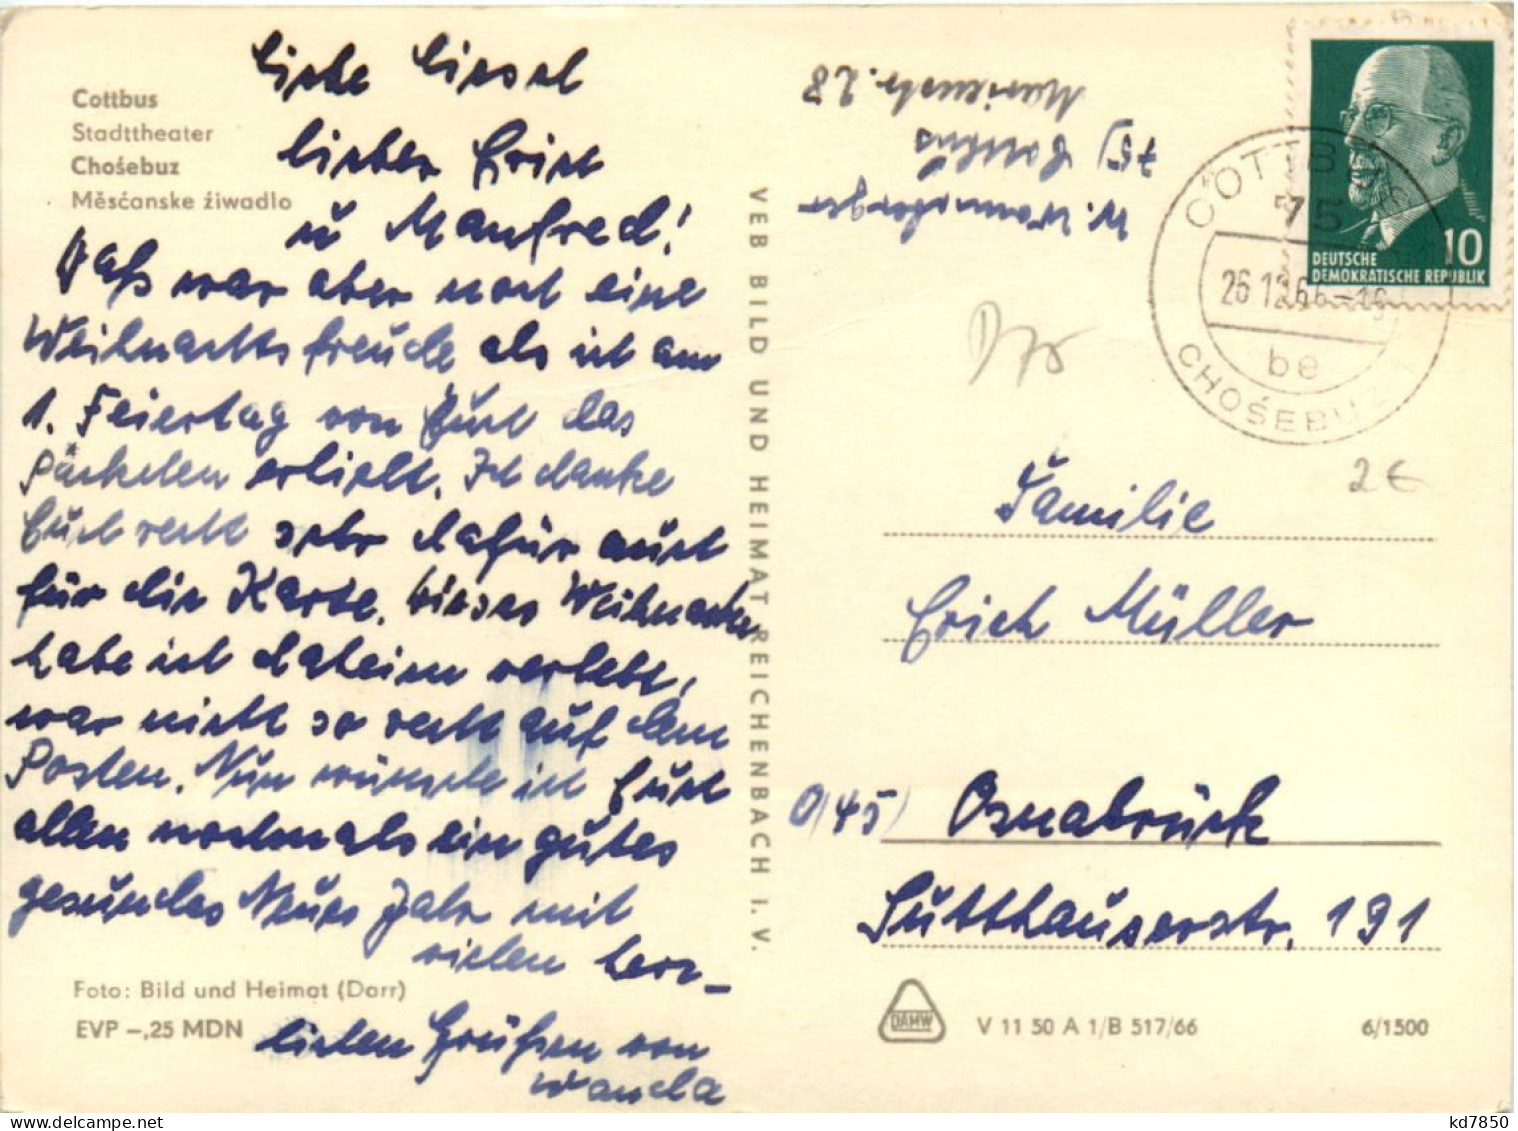 Cottbus
Stadttheater
Chośebuz
Měsćanske źiwadlo
Liebe Liesel
lieber Erich
u Manfred!
Daß war aber noch eine
Weihnachtsfreude als ich am
1. Feiertag von Euch das
Päckchen erhielt. Ich danke
Euch recht sehr dafür auch
für die Karte. Dieses Weihnachten
habe ich daheim verlebt,
war nicht so recht auf dem
Posten. Nun wünsche ich Euch
allen nochmals ein gutes
gesundes Neues Jahr mit
vielen herz-
lichen Grüßen von
Wanda
Foto: Bild und Heimat (Darr)
EVP –,25 MDN
VEB BILD UND HEIMAT REICHENBACH I. V.
W.
75) Cottbus
Marienstr. 28
DEUTSCHE
DEMOKRATISCHE REPUBLIK
10
COTTBUS
75
26.12.66-16
be
CHOŚEBUZ 1
2€
Familie
Erich Müller
(45) Osnabrück
Sutthauserstr. 191
DAMW
V 11 50 A 1/B 517/66
6/1500
kd7850